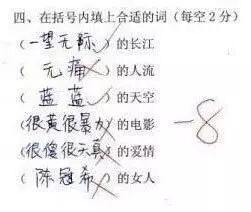 四、在括号内填上合适的词（每空2分）
（一望无际）的长江
（无痛）的人流
（蓝蓝）的天空
（很黄很暴力）的电影
（很傻很天真）的爱情
（陈冠希）的女人
-8